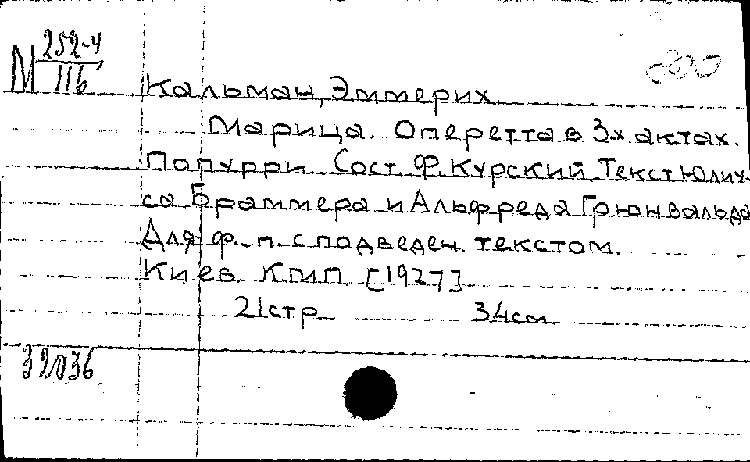 М 252-4
116
Кальман, Эммерих
Марица. Оперетта в 3х актах.
Попурри Сост. Ф. Курский Текст Юлиу-
са Браммера и Альфреда Грюнвальда
Для ф.-п. с подведен. текстом.
Киев КМП [1927]
21 стр 34 см
39036